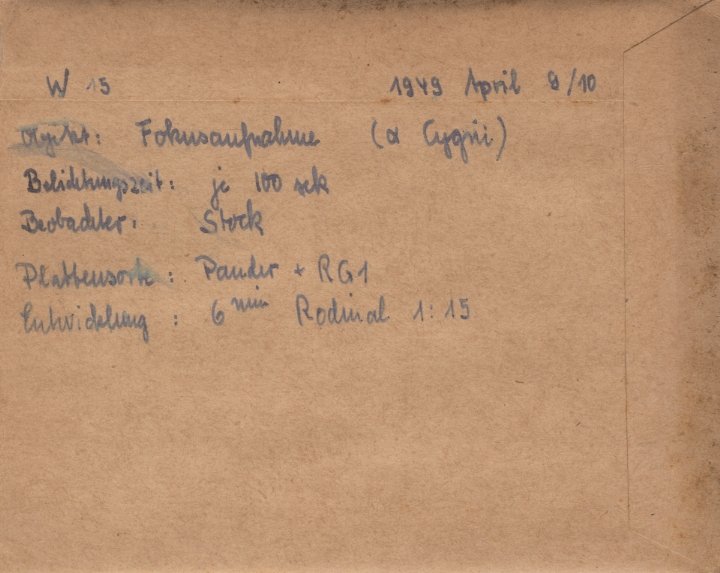 W 15 1949 April 9/10
Objekt: Fokusaufnahme (α Cygni)
Belichtungszeit: je 100 sek
Beobachter: Stock
Plattensorte: Pander + RG1
Entwicklung: 6 min Rodinal 1:15